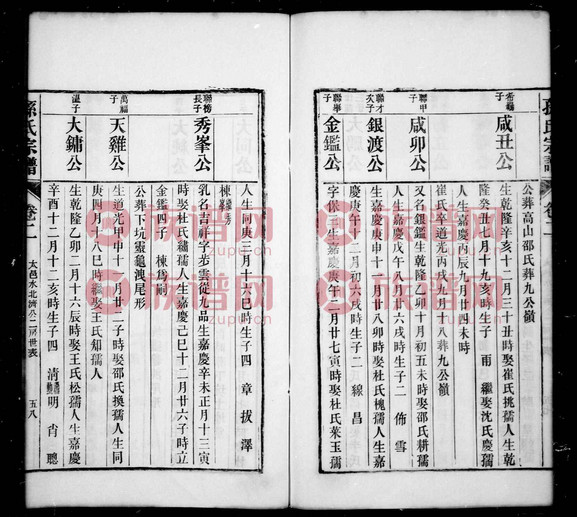 孫氏宗譜
卷二
公葬高山邵氏葬九公嶺
希
子
咸丑公
生乾隆辛亥十二月三十丑時娶崔氏挑孺人生乾
隆癸丑七月十九亥時生子 雨 繼娶沈氏慶孺
人生嘉慶丙辰九月廿四未時
崔氏卒道光丙戌九月十八葬九公嶺
聯甲
子
咸卯公
又名銀鑑生乾隆乙卯十月初五未時娶邵氏耕孺
人生嘉慶戊午八月廿六戌時生子二 佈 雪
聯才
次子
銀渡公
生嘉慶庚申十月廿八卯時娶杜氏槐孺人生嘉
慶庚午十二月初六戌時生子二 線 昌
聯舉
子
金鑑公
字保 生嘉慶庚午三月廿七寅時娶杜氏萊玉孺
人生同庚三月十六巳時生子四 章 拔 澤
棟
聯榜
長子
秀峯公
乳名吉祥字步雲從九品生嘉慶辛未正月十三寅
時娶杜氏繡孺人生嘉慶己巳十二月廿六子時立
金鑑四子 棟爲嗣
公葬下坑靈龜洩尾形
萬福
子
天雞公
生道光甲申十一月廿二子時娶邵氏換孺人生同
庚四月十八巳時繼娶王氏知孺人
溫子
大鏞公
生乾隆乙卯二月十六辰時娶王氏松孺人生嘉慶
辛酉十二月十二亥時生子四 清 明 肖 聰
孫氏宗譜
卷二
大邑水北濟公二房世表
五八
族譜网
zupu.cn